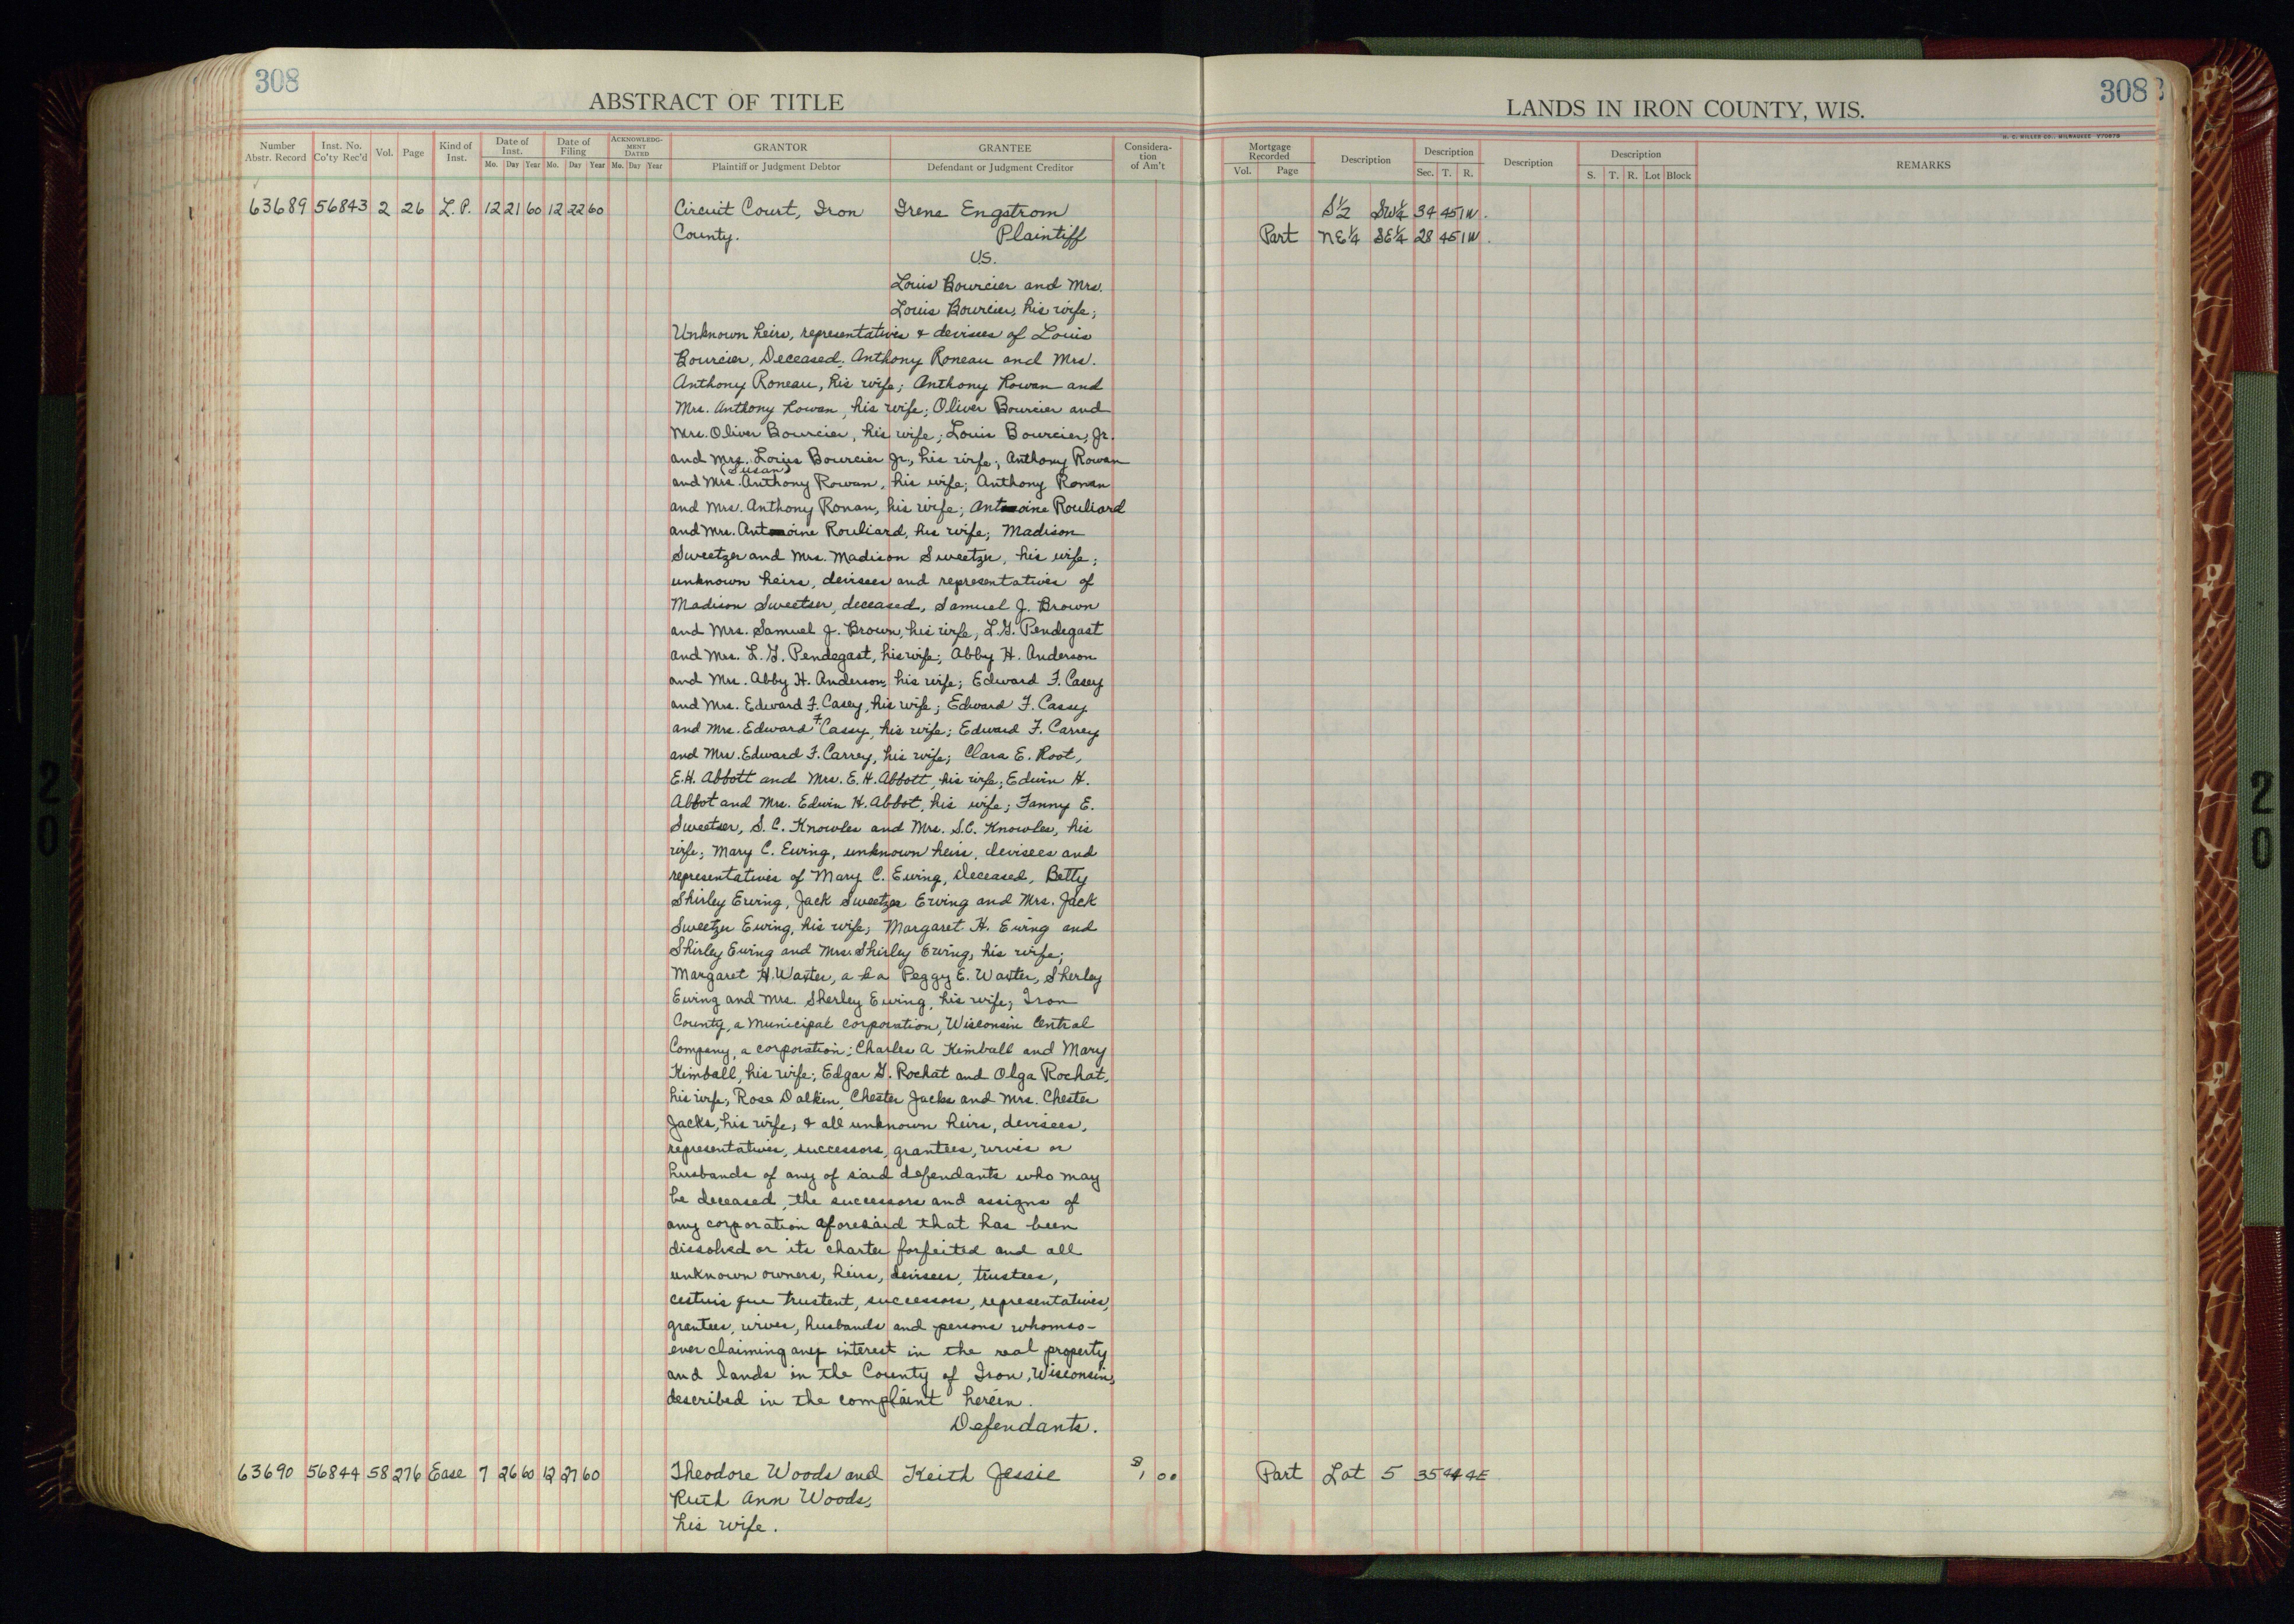 308
ABSTRACT OF TITLE
Number Abstr. Record
Inst. No. Co'ty Rec'd
Vol.
Page
Kind of Inst.
Date of Inst.
Mo. Day Year
Date of Filing
Mo. Day Year
ACKNOWLEDG-MENT DATED
Mo. Day Year
GRANTOR
Plaintiff or Judgment Debtor
GRANTEE
Defendant or Judgment Creditor
Considera-tion of Am't
63689 56843 2 26 L.P. 12 21 60 12 22 60 Circuit Court, Iron Irene Engstrom
County. Plaintiff
U.S.
Louis Bourcier and Mrs.
Louis Bourcier, his wife;
Unknown heirs, representatives & devisees of Louis
Bourcier, Deceased; Anthony Roneau and Mrs.
Anthony Roneau, his wife; Anthony Rowan and
Mrs. Anthony Rowan, his wife; Oliver Bourcier and
Mrs. Oliver Bourcier, his wife; Louis Bourcier, Jr.
and Mrs. Louis Bourcier Jr., his wife; Anthony Rowan
(Susan)
and Mrs. Anthony Rowan, his wife; Anthony Ronan
and Mrs. Anthony Ronan, his wife; Antoine Rouliard
and Mrs. Antoine Rouliard, his wife; Madison
Sweetzer and Mrs. Madison Sweetzer, his wife;
unknown heirs, devisees and representatives of
Madison Sweetser, deceased, Samuel J. Brown
and Mrs. Samuel J. Brown, his wife, L.G. Pendegast
and Mrs. L.G. Pendegast, his wife; Abby H. Anderson
and Mrs. Abby H. Anderson, his wife; Edward F. Casey
and Mrs. Edward F. Casey, his wife; Edward F. Cassy
and Mrs. Edward F. Cassy, his wife; Edward F. Carrey
and Mrs. Edward F. Carrey, his wife; Clara E. Root,
E.H. Abbott and Mrs. E.H. Abbott, his wife; Edwin H.
Abbot and Mrs. Edwin H. Abbot, his wife; Fanny E.
Sweetser, S.C. Knowles and Mrs. S.C. Knowles, his
wife; Mary C. Ewing, unknown heirs, devisees and
representatives of Mary C. Ewing, Deceased, Betty
Shirley Ewing, Jack Sweetzer Ewing and Mrs. Jack
Sweetzer Ewing, his wife; Margaret H. Ewing and
Shirley Ewing and Mrs. Shirley Ewing, his wife;
Margaret H. Waxter, a k a Peggy E. Waxter, Sherley
Ewing and Mrs. Sherley Ewing, his wife; Iron
County, a Municipal corporation, Wisconsin Central
Company, a corporation; Charles A Kimball and Mary
Kimball, his wife; Edgar G. Rochat and Olga Rochat,
his wife; Rose Dalkin, Chester Jacks and Mrs. Chester
Jacks, his wife; & all unknown heirs, devisees,
representatives, successors, grantees, wives or
husbands of any of said defendants who may
be deceased, the successors and assigns of
any corporation aforesaid that has been
dissolved or its charter forfeited and all
unknown owners, heirs, devisees, trustees,
cestuis que trustent, successors, representatives,
grantees, wives, husbands and persons whomso-
ever claiming any interest in the real property
and lands in the County of Iron, Wisconsin,
described in the complaint herein.
Defendants.
63690 56844 58 276 Ease 7 26 60 12 27 60 Theodore Woods and Keith Jessie 00
Ruth Ann Woods,
his wife.
308
LANDS IN IRON COUNTY, WIS.
H. C. MILLER CO., MILWAUKEE
Mortgage Recorded
Vol. Page
Description
Description
Sec. T. R.
Description
Description
S. T. R. Lot Block
REMARKS
S½ SW¼ 34 45 1W.
Part NE¼ SE¼ 28 45 1W.
Part Lot 5 35 44 4E
20
20